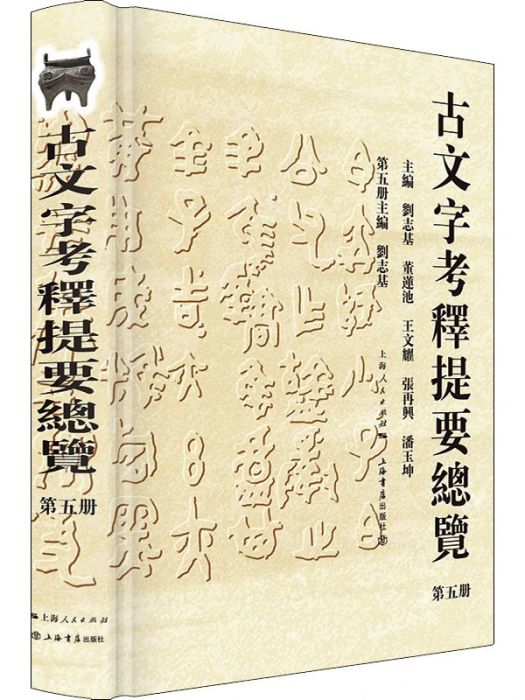 古文字考釋提要總覽
第五册
主編 劉志基 董蓮池 王文耀 張再興 潘玉坤
第五册主編 劉志基
上海人民出版社
上海書店出版社
古文字考釋提要總覽
第五册
上海人民出版社
上海書店出版社